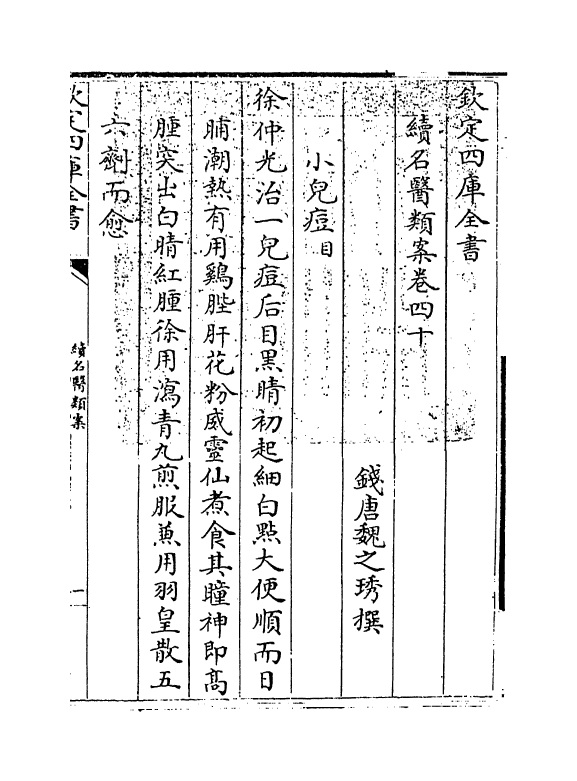 欽定四庫全書
續名醫類案卷四十
錢唐魏之琇撰
小兒痘目
徐仲光治一兒痘后目黒睛初起細白㸃大便順而日
晡潮熱有用鷄䏶肝花粉威靈仙煮食其瞳神即髙
腫突出白睛紅腫徐用瀉青丸煎服兼用羽皇散五
六劑而愈
欽定四庫全書
續名醫類案
一